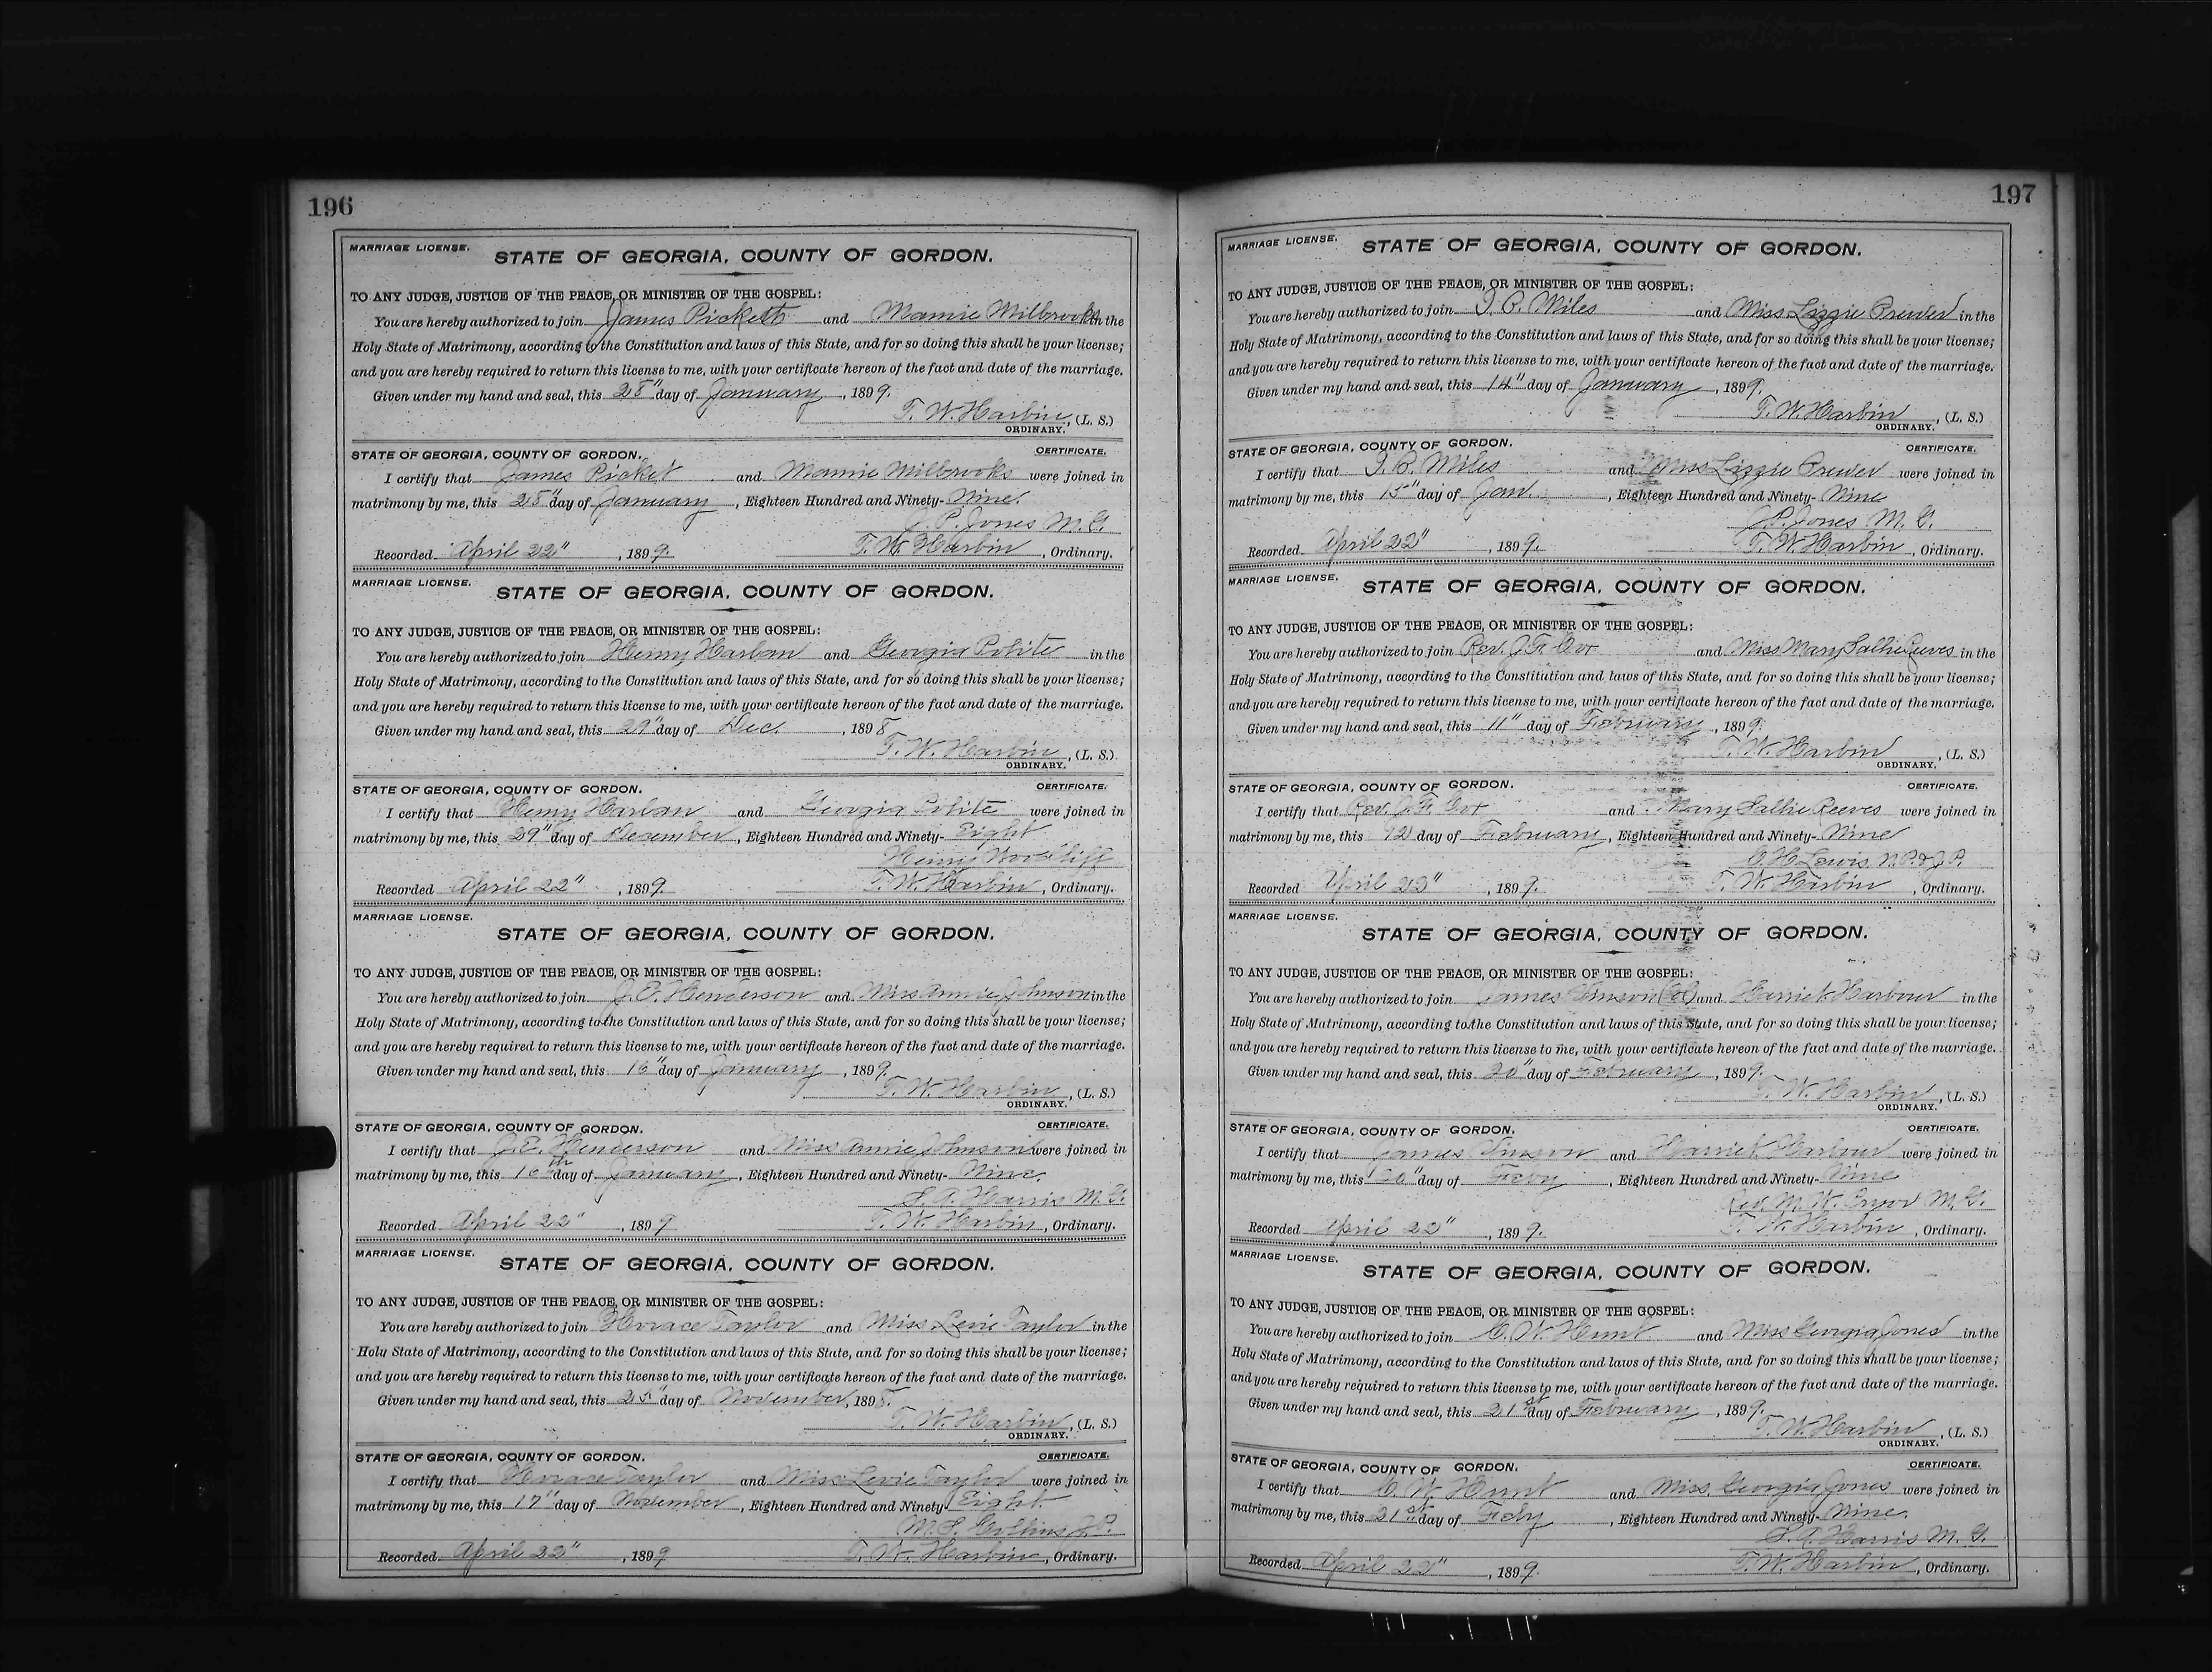 196
MARRIAGE LICENSE.
STATE OF GEORGIA, COUNTY OF GORDON.
TO ANY JUDGE, JUSTICE OF THE PEACE, OR MINISTER OF THE GOSPEL:
You are hereby authorized to join James Pickett and Mamie Milbrooks in the
Holy State of Matrimony, according to the Constitution and laws of this State, and for so doing this shall be your license;
and you are hereby required to return this license to me, with your certificate hereon of the fact and date of the marriage.
Given under my hand and seal, this 28" day of January, 1899.
T. W. Harbin, (L. S.)
ORDINARY.
STATE OF GEORGIA, COUNTY OF GORDON. CERTIFICATE.
I certify that James Picket and Mamie Milbrooks were joined in
matrimony by me, this 28" day of January, Eighteen Hundred and Ninety-Nine.
J. P. Jones M. G.
Recorded April 22", 1899. T. W. Harbin, Ordinary.
MARRIAGE LICENSE.
STATE OF GEORGIA, COUNTY OF GORDON.
TO ANY JUDGE, JUSTICE OF THE PEACE, OR MINISTER OF THE GOSPEL:
You are hereby authorized to join Henry Harlan and Georgia Polite in the
Holy State of Matrimony, according to the Constitution and laws of this State, and for so doing this shall be your license;
and you are hereby required to return this license to me, with your certificate hereon of the fact and date of the marriage.
Given under my hand and seal, this 29" day of Dec., 1898
T. W. Harbin, (L. S.)
ORDINARY.
STATE OF GEORGIA, COUNTY OF GORDON. CERTIFICATE.
I certify that Henry Harlan and Georgia Polite were joined in
matrimony by me, this 29" day of December, Eighteen Hundred and Ninety-Eight
Henry
Recorded April 22", 1899. T. W. Harbin, Ordinary.
MARRIAGE LICENSE.
STATE OF GEORGIA, COUNTY OF GORDON.
TO ANY JUDGE, JUSTICE OF THE PEACE, OR MINISTER OF THE GOSPEL:
You are hereby authorized to join J. E. Henderson and Miss Annie Johnson in the
Holy State of Matrimony, according to the Constitution and laws of this State, and for so doing this shall be your license;
and you are hereby required to return this license to me, with your certificate hereon of the fact and date of the marriage.
Given under my hand and seal, this 16" day of January, 1899.
T. W. Harbin, (L. S.)
ORDINARY.
STATE OF GEORGIA, COUNTY OF GORDON. CERTIFICATE.
I certify that J. E. Henderson and Miss Annie Johnson were joined in
matrimony by me, this 16th day of January, Eighteen Hundred and Ninety-Nine.
S. A. Harris M. G.
Recorded April 22", 1899. T. W. Harbin, Ordinary.
MARRIAGE LICENSE.
STATE OF GEORGIA, COUNTY OF GORDON.
TO ANY JUDGE, JUSTICE OF THE PEACE, OR MINISTER OF THE GOSPEL:
You are hereby authorized to join Horace Taylor and Miss Levie Taylor in the
Holy State of Matrimony, according to the Constitution and laws of this State, and for so doing this shall be your license;
and you are hereby required to return this license to me, with your certificate hereon of the fact and date of the marriage.
Given under my hand and seal, this 25" day of November, 1898.
T. W. Harbin, (L. S.)
ORDINARY.
STATE OF GEORGIA, COUNTY OF GORDON. CERTIFICATE.
I certify that Horace Taylor and Miss Levie Taylor were joined in
matrimony by me, this 17" day of November, Eighteen Hundred and Ninety Eight.
M. S. Collins J. P.
Recorded April 22", 1899 T. W. Harbin, Ordinary.
197
MARRIAGE LICENSE.
STATE OF GEORGIA, COUNTY OF GORDON.
TO ANY JUDGE, JUSTICE OF THE PEACE, OR MINISTER OF THE GOSPEL:
You are hereby authorized to join Miles and Miss Lizzie Brewer in the
Holy State of Matrimony, according to the Constitution and laws of this State, and for so doing this shall be your license;
and you are hereby required to return this license to me, with your certificate hereon of the fact and date of the marriage.
Given under my hand and seal, this 14" day of January, 1899.
T. W. Harbin, (L. S.)
ORDINARY.
STATE OF GEORGIA, COUNTY OF GORDON. CERTIFICATE.
I certify that Miles and Miss Lizzie Brewer were joined in
matrimony by me, this 15" day of Jan., Eighteen Hundred and Ninety-Nine
J. P. Jones M. G.
Recorded April 22", 1899. T. W. Harbin, Ordinary.
MARRIAGE LICENSE.
STATE OF GEORGIA, COUNTY OF GORDON.
TO ANY JUDGE, JUSTICE OF THE PEACE, OR MINISTER OF THE GOSPEL:
You are hereby authorized to join Rev. J. F. Cox and Miss Mary Sallie Reeves in the
Holy State of Matrimony, according to the Constitution and laws of this State, and for so doing this shall be your license;
and you are hereby required to return this license to me, with your certificate hereon of the fact and date of the marriage.
Given under my hand and seal, this 11" day of February, 1899.
T. W. Harbin, (L. S.)
ORDINARY.
STATE OF GEORGIA, COUNTY OF GORDON. CERTIFICATE.
I certify that Rev. J. F. Cox and Mary Sallie Reeves were joined in
matrimony by me, this 12 day of February, Eighteen Hundred and Ninety-Nine
Lewis N. P. & J. P.
Recorded April 22", 1899. T. W. Harbin, Ordinary.
MARRIAGE LICENSE.
STATE OF GEORGIA, COUNTY OF GORDON.
TO ANY JUDGE, JUSTICE OF THE PEACE, OR MINISTER OF THE GOSPEL:
You are hereby authorized to join James Vinson (Col) and Harriet Harbour in the
Holy State of Matrimony, according to the Constitution and laws of this State, and for so doing this shall be your license;
and you are hereby required to return this license to me, with your certificate hereon of the fact and date of the marriage.
Given under my hand and seal, this 20" day of February, 1899.
T. W. Harbin, (L. S.)
ORDINARY.
STATE OF GEORGIA, COUNTY OF GORDON. CERTIFICATE.
I certify that James Vinson and Harriet Harbour were joined in
matrimony by me, this 20" day of Feby, Eighteen Hundred and Ninety-Nine
Rev. M. W. Pryor M. G.
Recorded April 22", 1899. T. W. Harbin, Ordinary.
MARRIAGE LICENSE.
STATE OF GEORGIA, COUNTY OF GORDON.
TO ANY JUDGE, JUSTICE OF THE PEACE, OR MINISTER OF THE GOSPEL:
You are hereby authorized to join C. W. Hunt and Miss Georgia Jones in the
Holy State of Matrimony, according to the Constitution and laws of this State, and for so doing this shall be your license;
and you are hereby required to return this license to me, with your certificate hereon of the fact and date of the marriage.
Given under my hand and seal, this 21st day of February, 1899.
T. W. Harbin, (L. S.)
ORDINARY.
STATE OF GEORGIA, COUNTY OF GORDON. CERTIFICATE.
I certify that C. W. Hunt and Miss Georgia Jones were joined in
matrimony by me, this 21st day of Feby, Eighteen Hundred and Ninety-Nine.
S. A. Harris M. G.
Recorded April 22", 1899. T. W. Harbin, Ordinary.